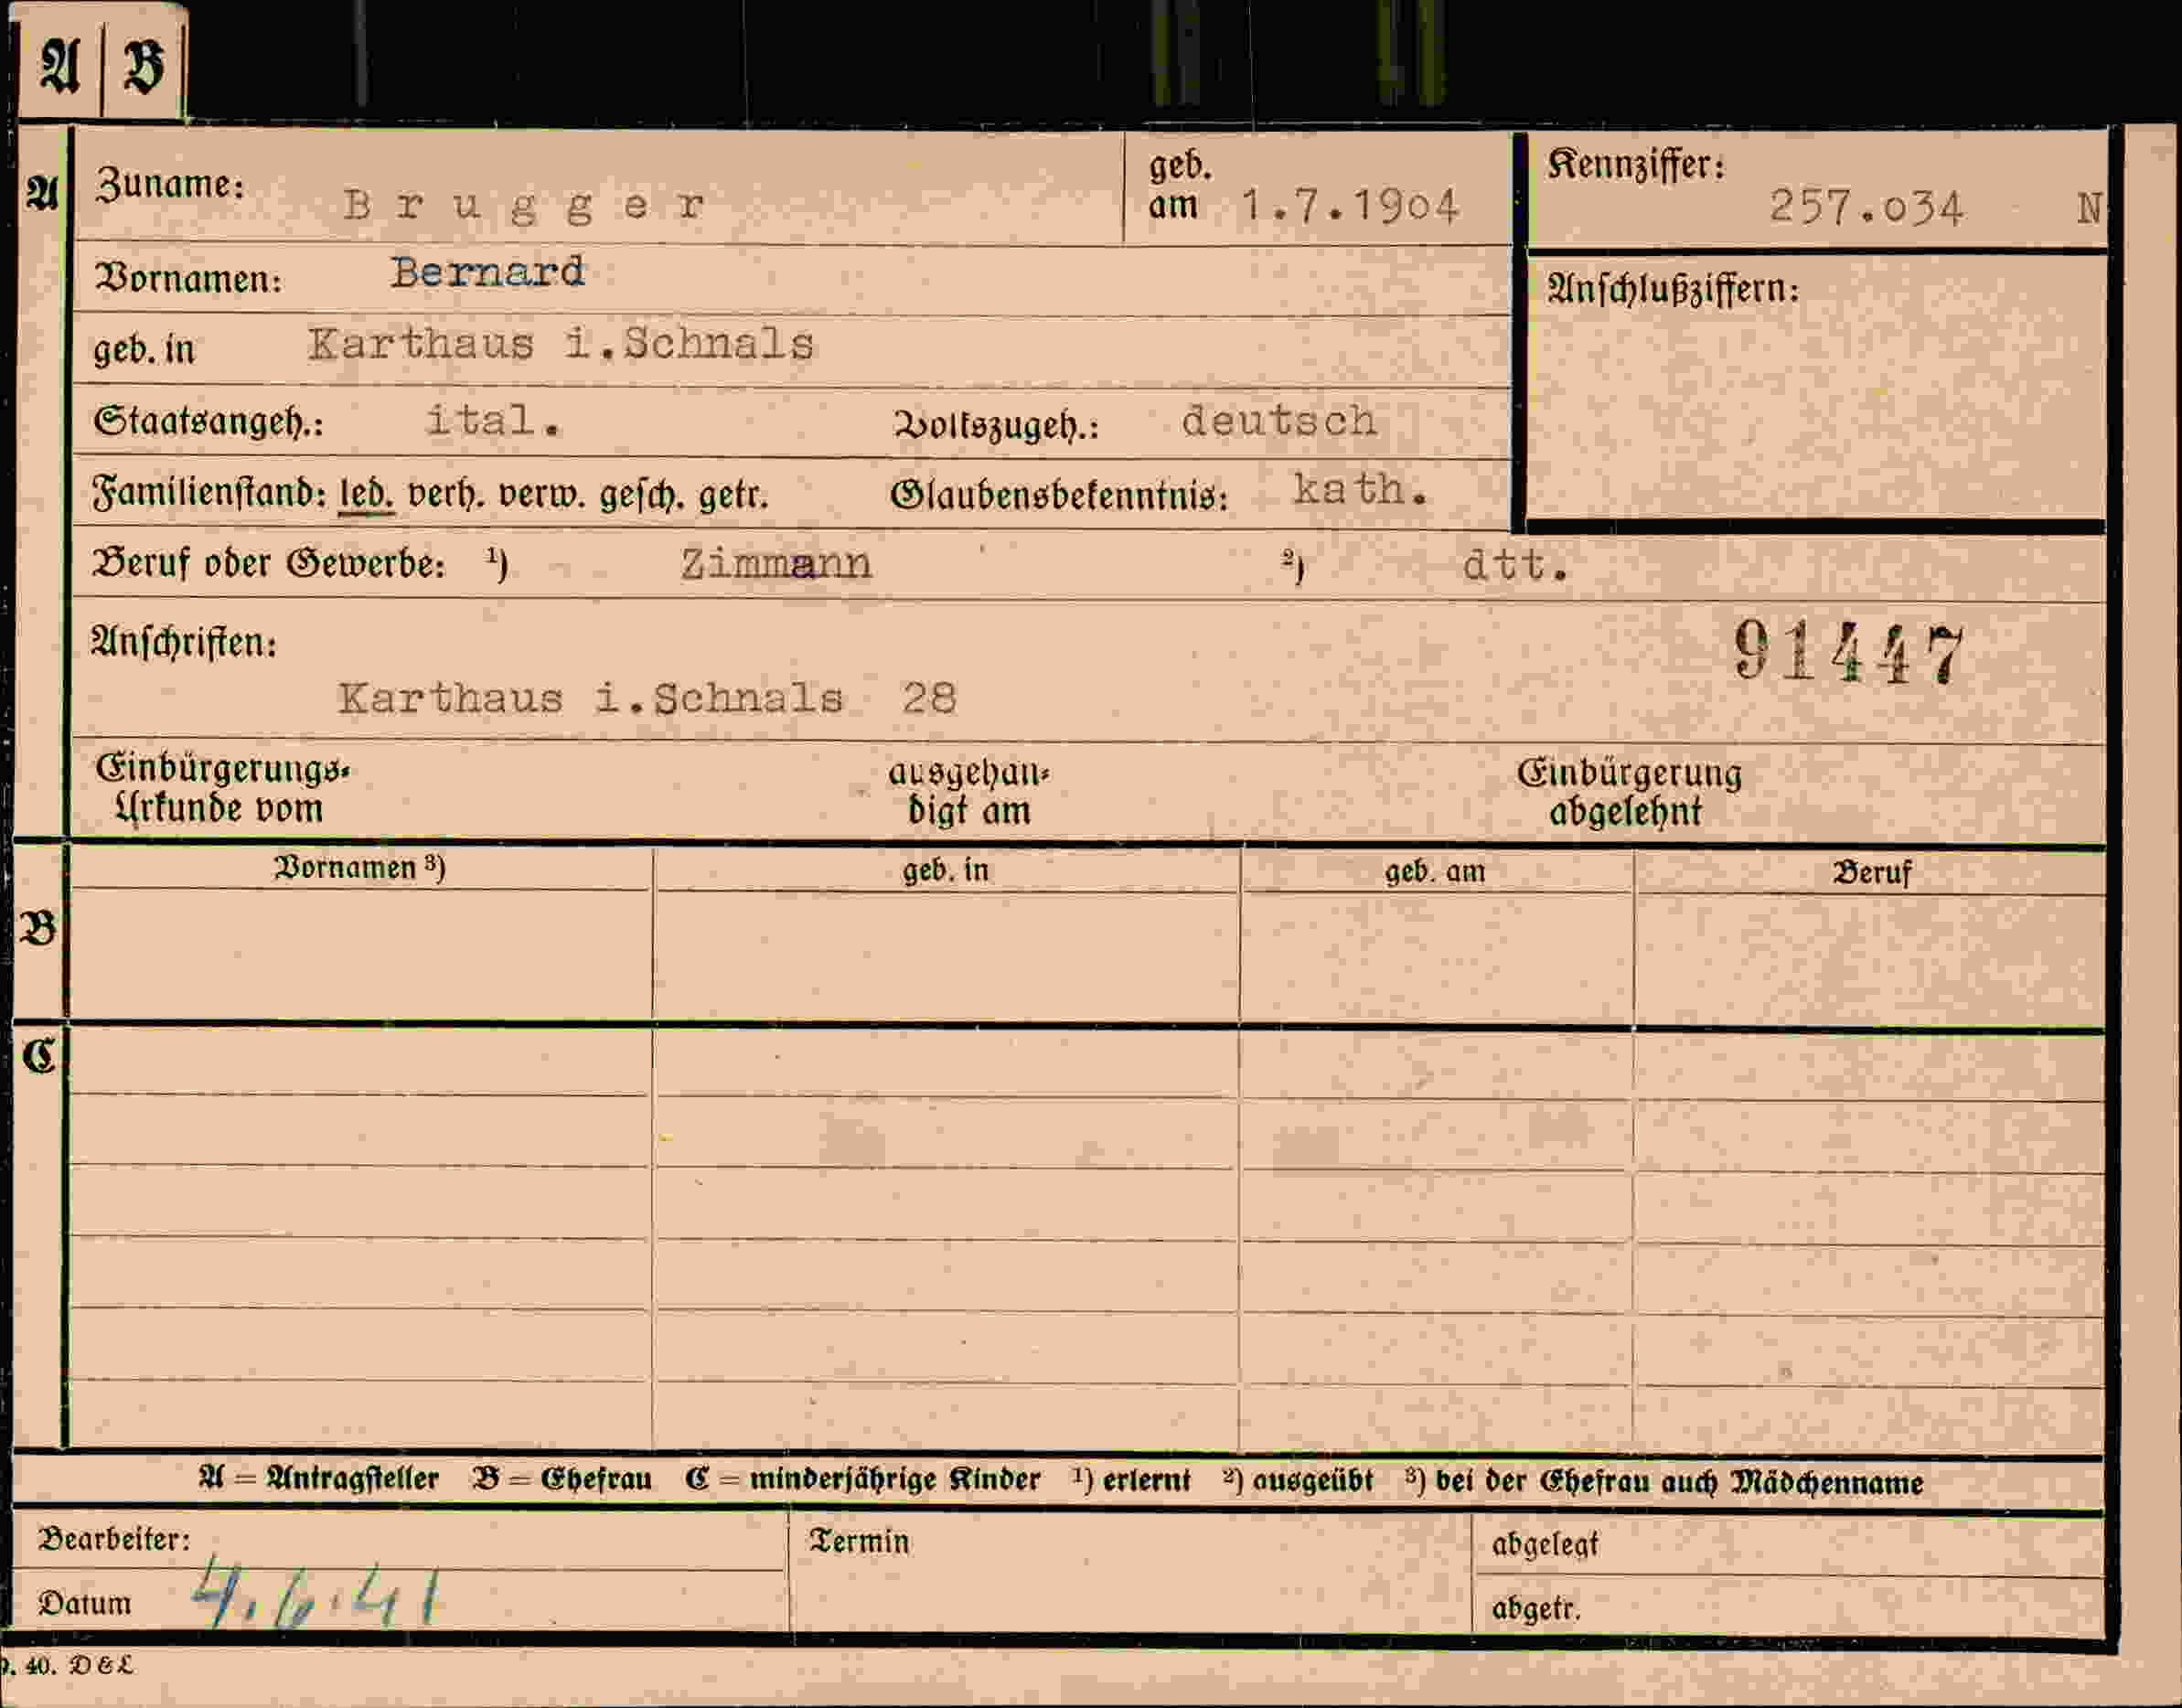 A B
A Zuname: Brugger geb. am 1.7.1904 Kennziffer: 257.034 N
Vornamen: Bernard Anschlußziffern:
geb. in Karthaus i.Schnals
Staatsangeh.: ital. Volkszugeh.: deutsch
Familienstand: led. verh. verw. gesch. getr. Glaubensbekenntnis: kath.
Beruf oder Gewerbe: ¹) Zimmann ²) dtt.
Anschriften: 91447
Karthaus i.Schnals 28
Einbürgerungs- ausgehän- Einbürgerung
Urkunde vom digt am abgelehnt
Vornamen ³) geb. in geb. am Beruf
B
C
A = Antragsteller B = Ehefrau C = minderjährige Kinder ¹) erlernt ²) ausgeübt ³) bei der Ehefrau auch Mädchenname
Bearbeiter: Termin abgelegt
Datum 4.6.41 abgetr.
40. D & L